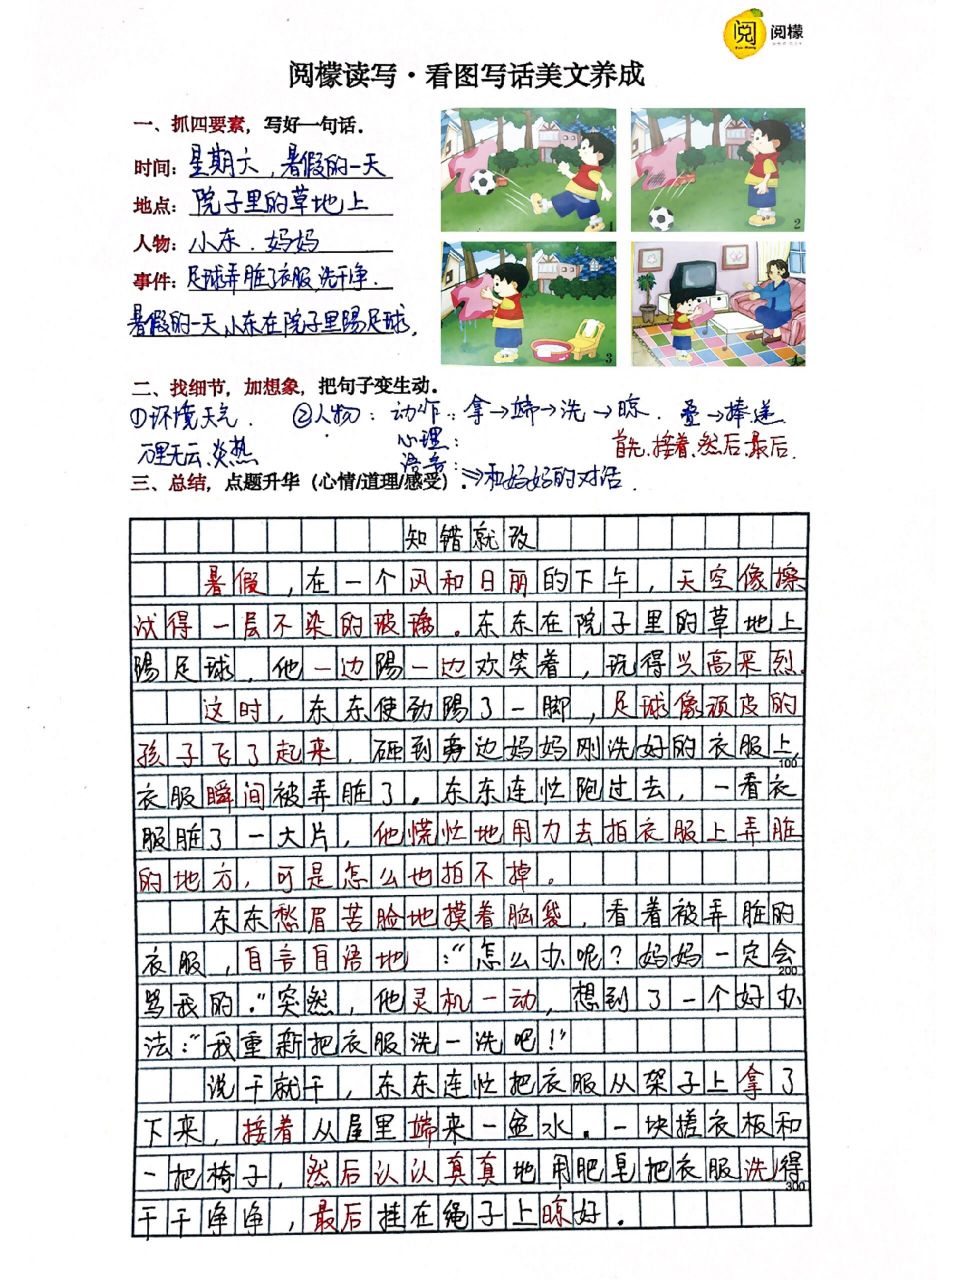 阅檬
阅檬读写·看图写话美文养成
一、抓四要素，写好一句话.
时间：星期六，暑假的一天
地点：院子里的草地上
人物：小东．妈妈
事件：足球弄脏了衣服,洗干净．
暑假的一天,小东在院子里踢足球．
1
2
3
二、找细节，加想象，把句子变生动．
①环境天气． ②人物：动作：拿→端→洗→晾． 叠→捧递
万里无云、炎热
心理：
首先、接着、然后、最后．
语言：⇒和妈妈的对话．
三、总结，点题升华（心情/道理/感受）．
知错就改
暑假，在一个风和日丽的下午，天空像擦
试得一层不染的玻璃．东东在院子里的草地上
踢足球，他一边踢一边欢笑着，玩得兴高采烈．
这时，东东使劲踢了一脚，足球像顽皮的
孩子飞了起来，砸到旁边妈妈刚洗好的衣服上，
100
衣服瞬间被弄脏了．东东连忙跑过去，一看衣
服脏了一大片，他慌忙地用力去拍衣服上弄脏
的地方，可是怎么也拍不掉。
东东愁眉苦脸地摸着脑袋，看着被弄脏的
衣服，自言自语地：“怎么办呢？妈妈一定会
200
骂我的．”突然，他灵机一动，想到了一个好办
法：“我重新把衣服洗一洗吧！”
说干就干，东东连忙把衣服从架子上拿了
下来，接着从屋里端来一盆水．一块搓衣板和
一把椅子，然后认认真真地用肥皂把衣服洗得
300
干干净净，最后挂在绳子上晾好．